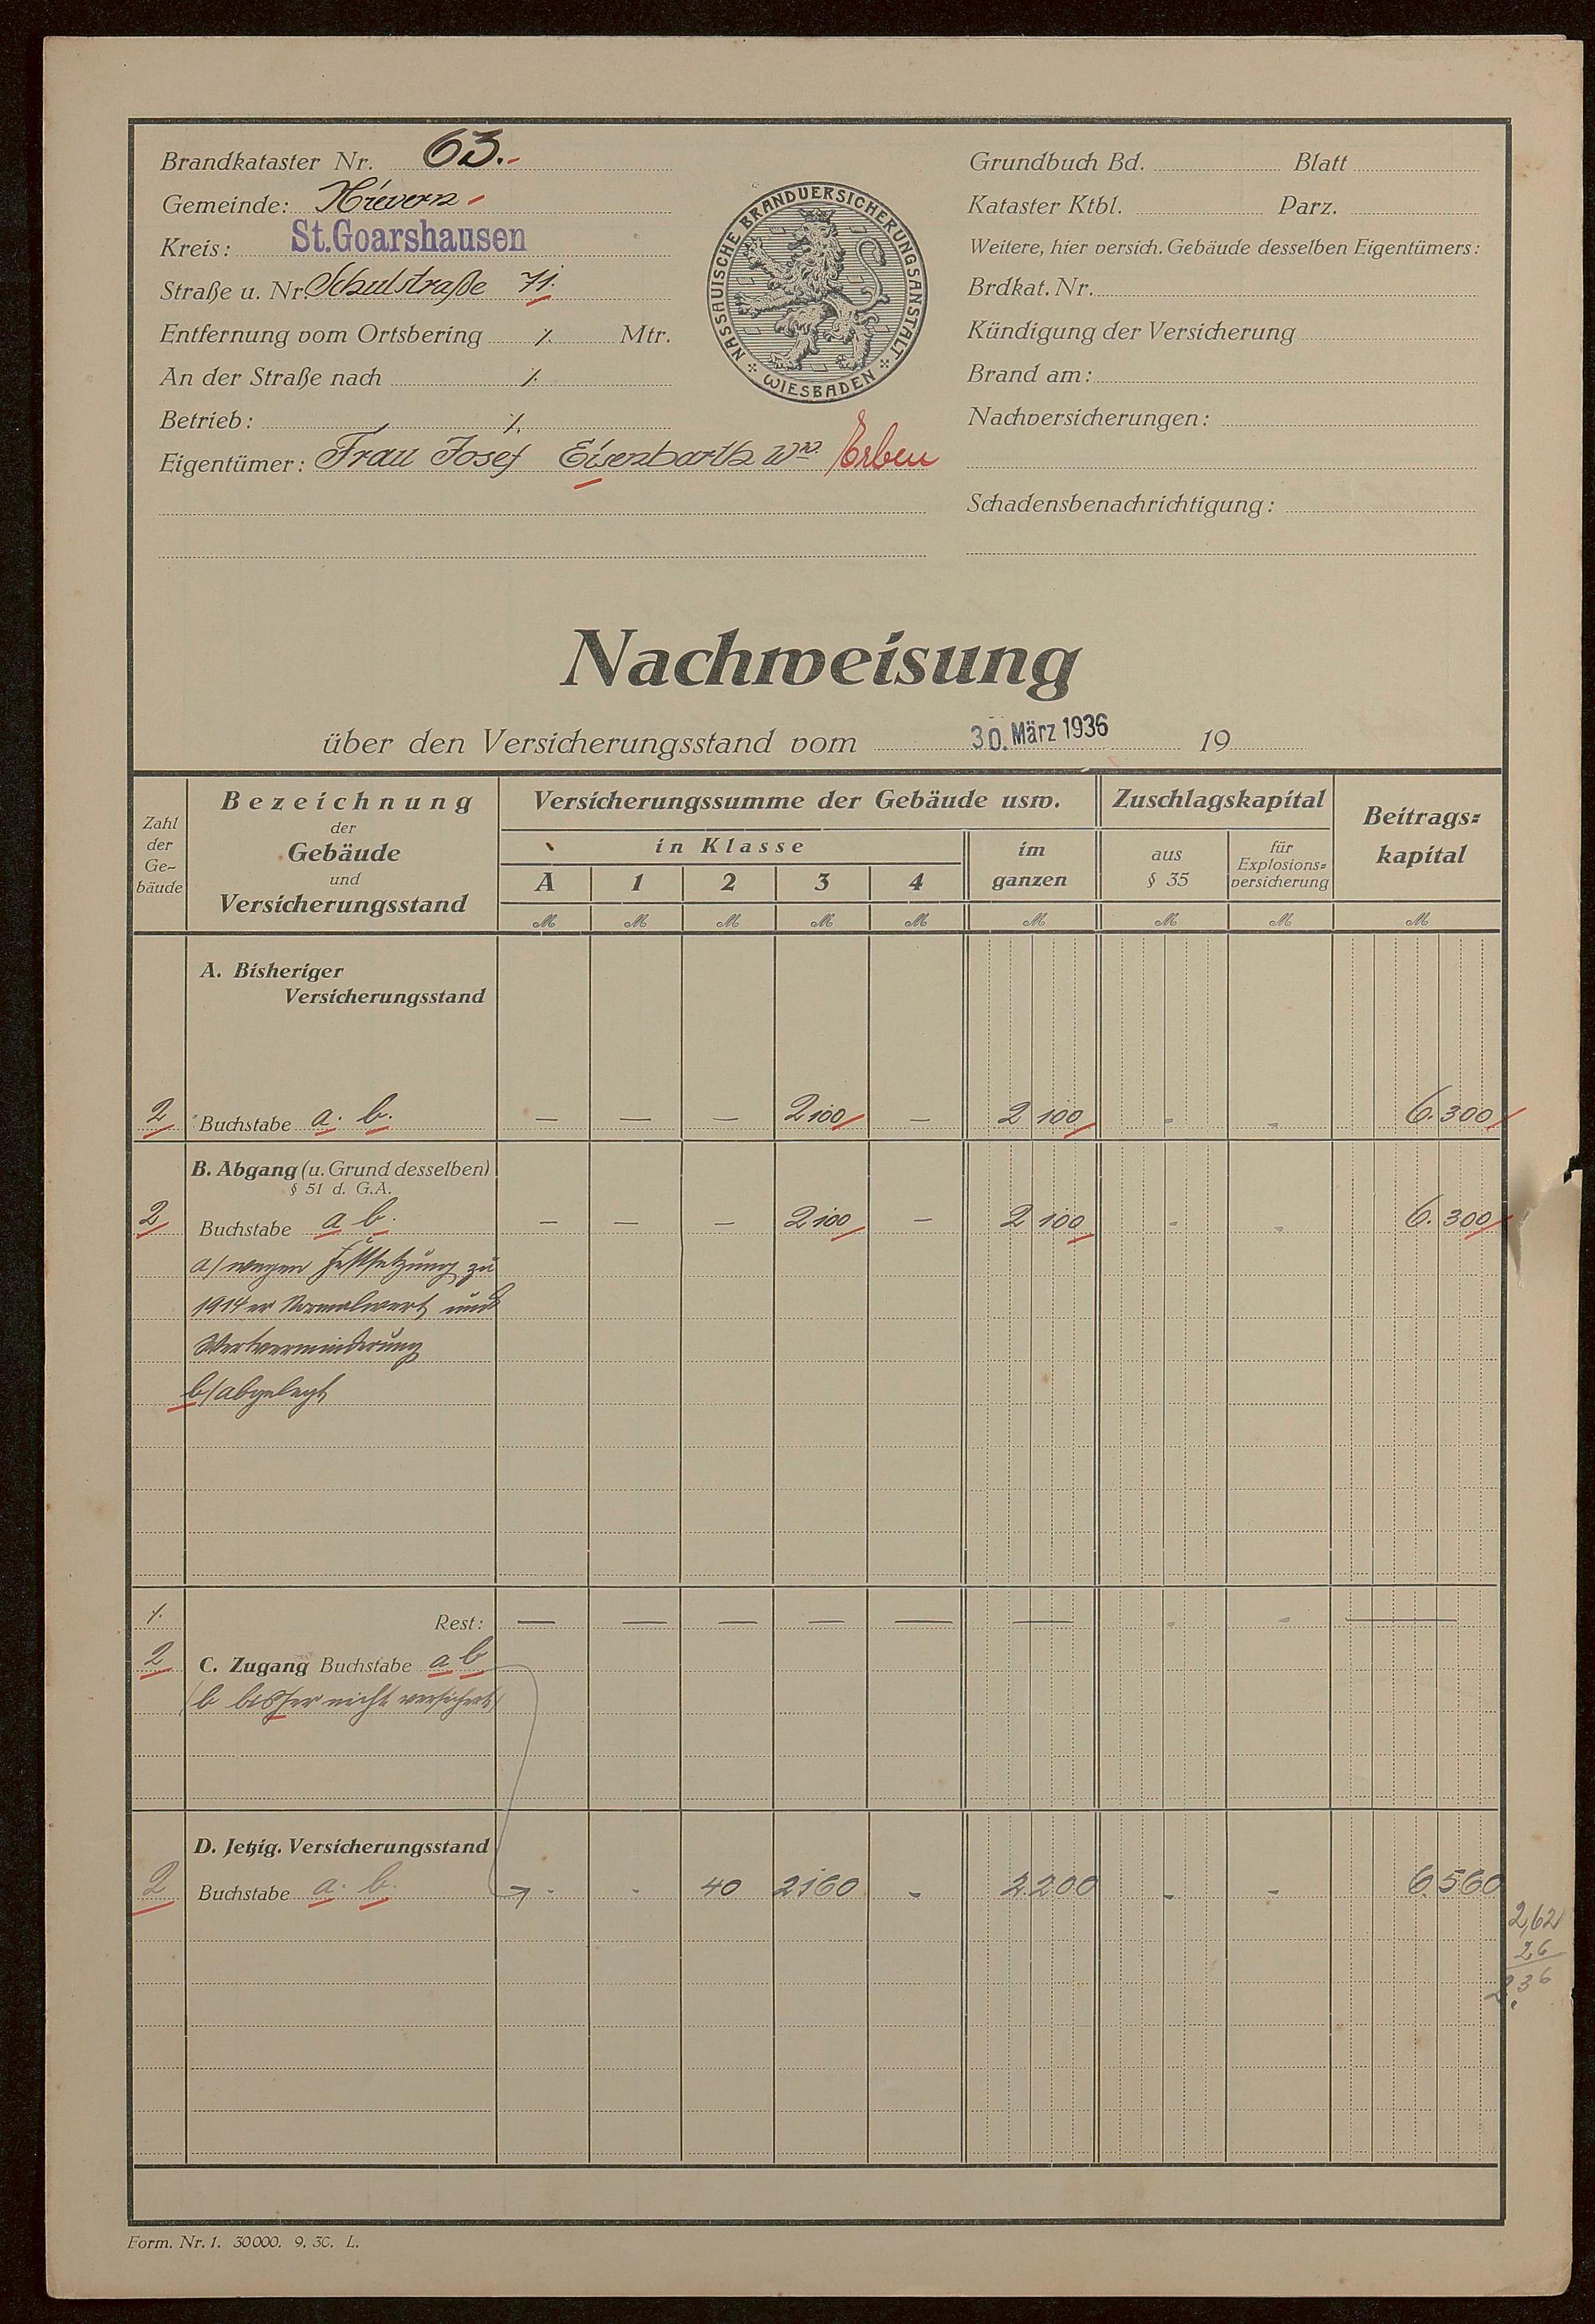 Brandkataster Nr. 63.-
Gemeinde: Nievern
Kreis: St.Goarshausen
Straße u. Nr. Schulstraße 71.
Entfernung vom Ortsbering ./. Mtr.
An der Straße nach ./.
Betrieb: ./.
Eigentümer: Frau Josef Eisenbarth Ww. Erben
NASSAUISCHE BRANDVERSICHERUNGSANSTALT
WIESBADEN
Grundbuch Bd. Blatt
Kataster Ktbl. Parz.
Weitere, hier versich. Gebäude desselben Eigentümers:
Brdkat. Nr.
Kündigung der Versicherung
Brand am:
Nachversicherungen:
Schadensbenachrichtigung:
Nachweisung
über den Versicherungsstand vom 30. März 1936 19
Zahl der Ge-bäude
Bezeichnung der Gebäude und Versicherungsstand
Versicherungssumme der Gebäude usw.
in Klasse
A 1 2 3 4
im ganzen
Zuschlagskapital
aus § 35
für Explosions-versicherung
Beitrags-kapital
M M M M M M M M M
A. Bisheriger
Versicherungsstand
2 Buchstabe a. b. — — — 2100 — 2 100 - - 6.300
B. Abgang (u. Grund desselben)
§ 51 d. G.A.
2 Buchstabe a b. — — — 2100 — 2 100 - - 6.300
a/ wegen Festsetzung zu
1914er Normalwert und
Wertverminderung
b/ abgelegt
./. Rest: — — — — — — - - —
2 C. Zugang Buchstabe a b
(b bisher nicht versichert)
D. Jetzig. Versicherungsstand
2 Buchstabe a. b. - - 40 2160 - 2.200 - - 6.560
2,62
26
2.36
Form. Nr. 1. 30000. 9. 30. L.